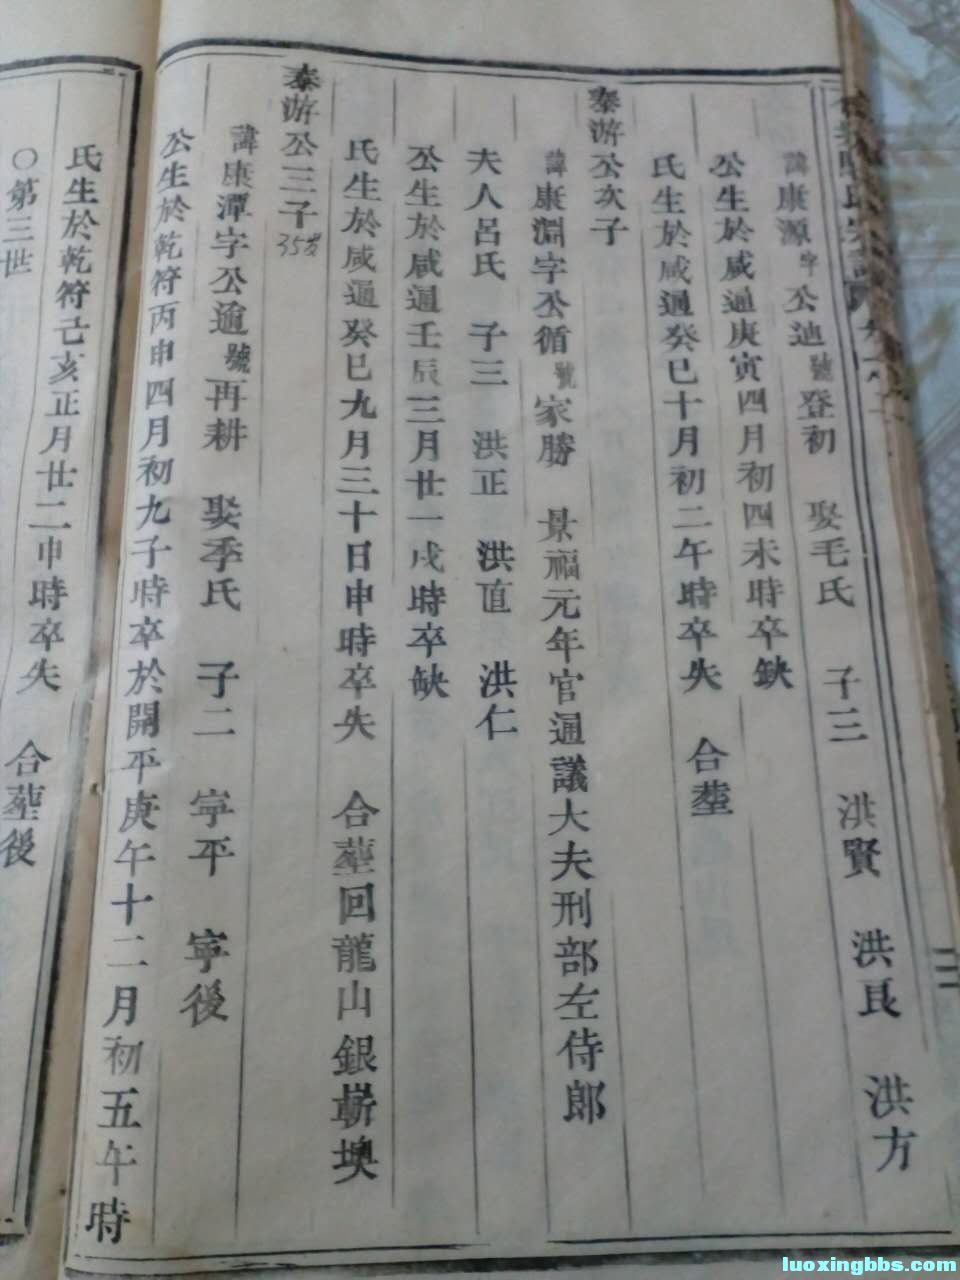 諱康源字公迪號登初　娶毛氏　子三　洪賢　洪良　洪方
公生於咸通庚寅四月初四未時卒缺
氏生於咸通癸巳十月初二午時卒失　合塟
泰游公次子
諱康淵字公循號家勝　景福元年官通議大夫刑部左侍郎
夫人呂氏　子三　洪正　洪直　洪仁
公生於咸通壬辰三月廿一戌時卒缺
氏生於咸通癸巳九月三十日申時卒失　合塟回龍山銀嶄墺
泰游公三子 35岁
諱康潭字公逾號再耕　娶季氏　子二　寜平　寜後
公生於乾符丙申四月初九子時卒於開平庚午十二月初五午時
氏生於乾符己亥正月廿二申時卒失　合塟後
○第三世
luoxingbbs.com